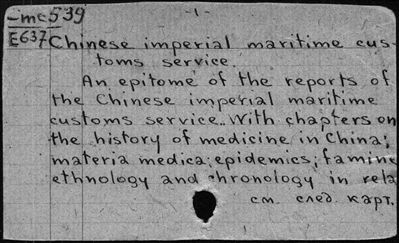 -mc539
-1-
E637
Chinese imperial maritime cus-
toms service.
An epitome of the reports of
the Chinese imperial maritime
customs service.. With chapters on
the history of medicine in China;
materia medica; epidemics; famine
ethnology and chronology in rela
см. след. карт.